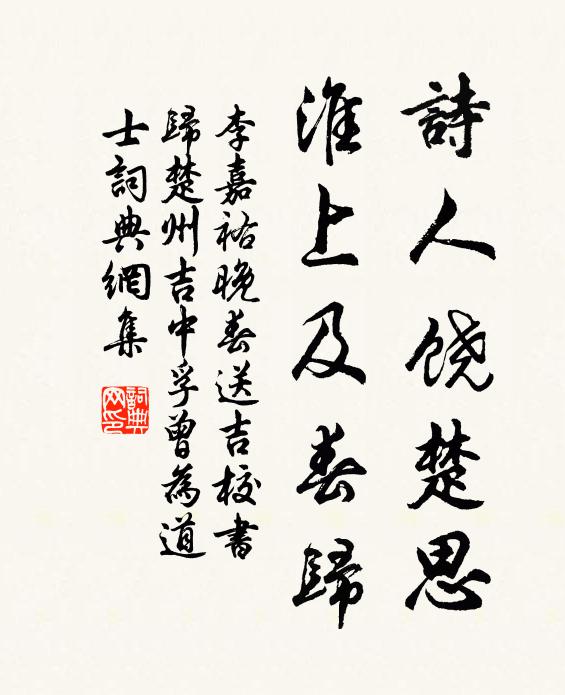 詩人饶楚思
淮上及春歸
李嘉祐晚春送吉校書
歸楚州吉中孚曾為道
士詞典網集
詞典
网印